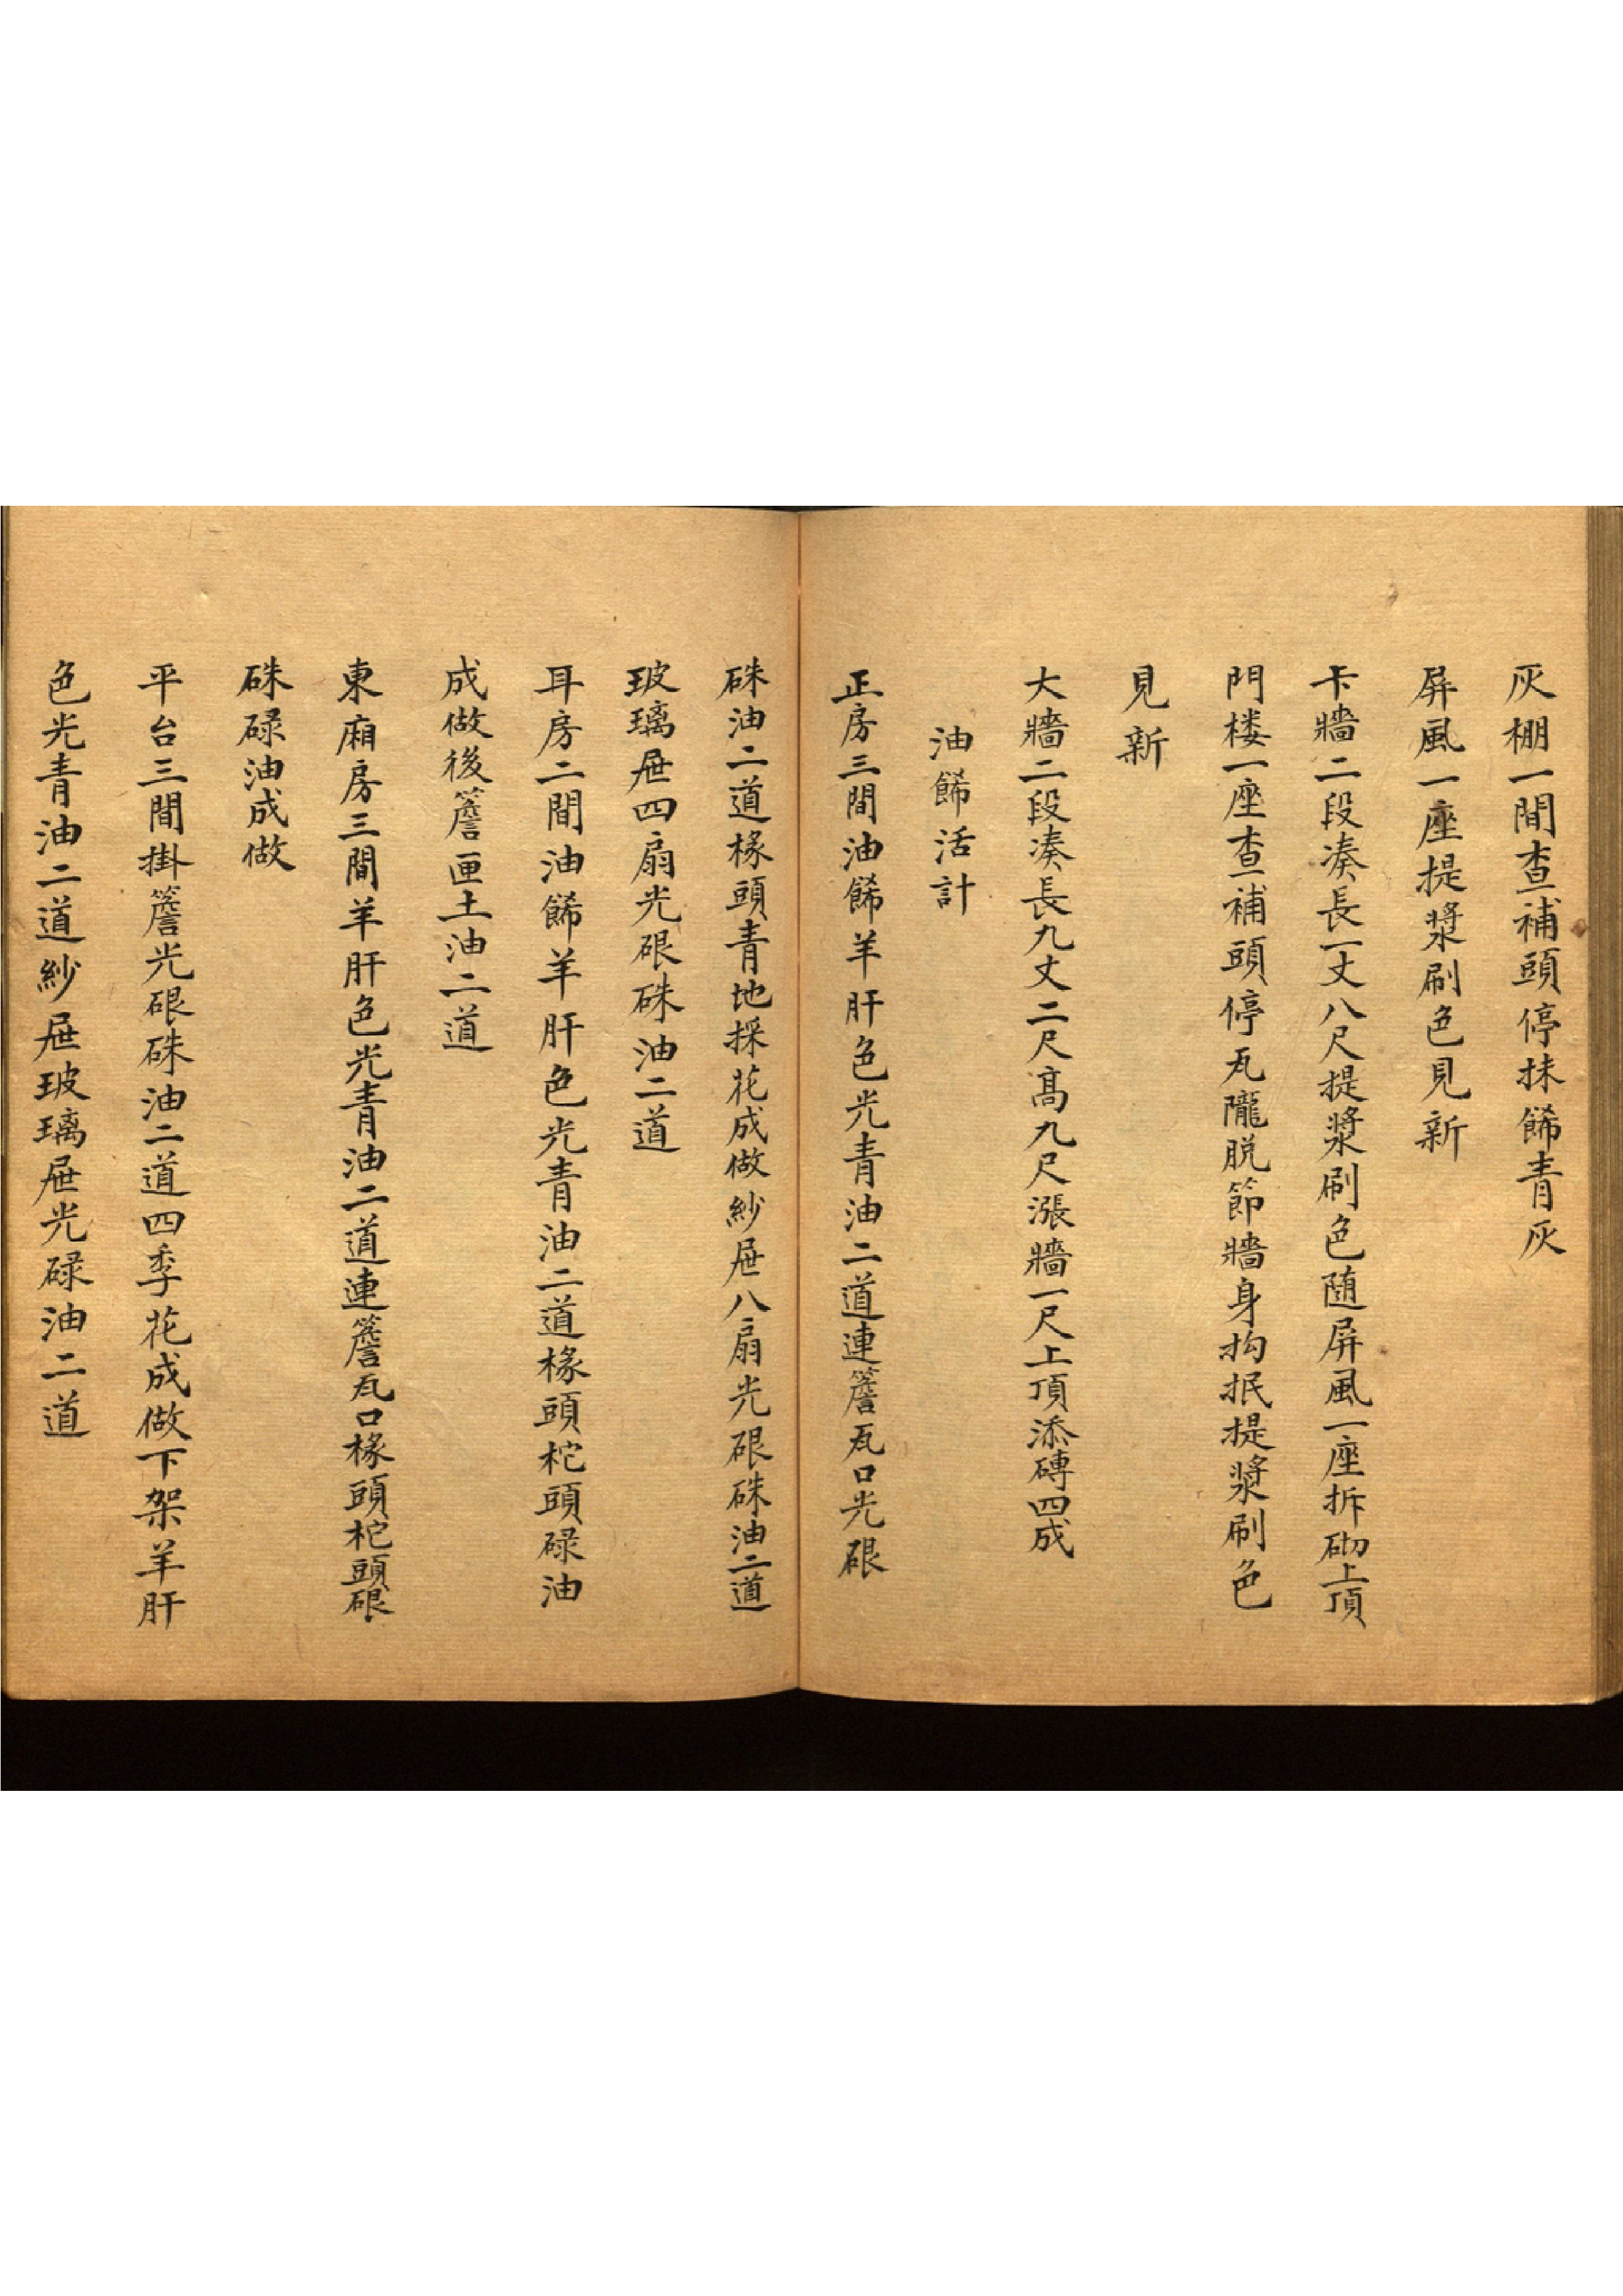 灰棚一間查補頭停抹餙青灰
屏風一座提漿刷色見新
卡牆二段凑長一丈八尺提漿刷色随屏風一座拆砌上頂
門楼一座查補頭停瓦隴脱節牆身抅抿提漿刷色
見新
大牆二段凑長九丈二尺髙九尺漲牆一尺上頂添磚四成
油餙活計
正房三間油餙羊肝色光青油二道連簷瓦口光硍
硃油二道椽頭青地採花成做紗屉八扇光硍硃油二道
玻璃屉四扇光硍硃油二道
耳房二間油餙羊肝色光青油二道椽頭柁頭碌油
成做後簷画土油二道
東廂房三間羊肝色光青油二道連簷瓦口椽頭柁頭硍
硃碌油成做
平台三間掛簷光硍硃油二道四季花成做下架羊肝
色光青油二道紗屉玻璃屉光碌油二道